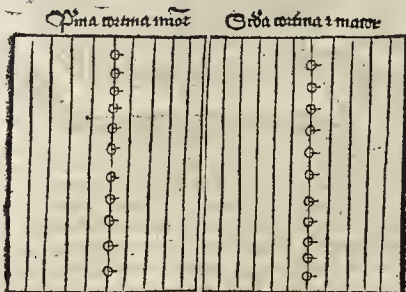 Pͥma cortina mīoꝛ
Scḋa cortina ⁊ maioꝛ